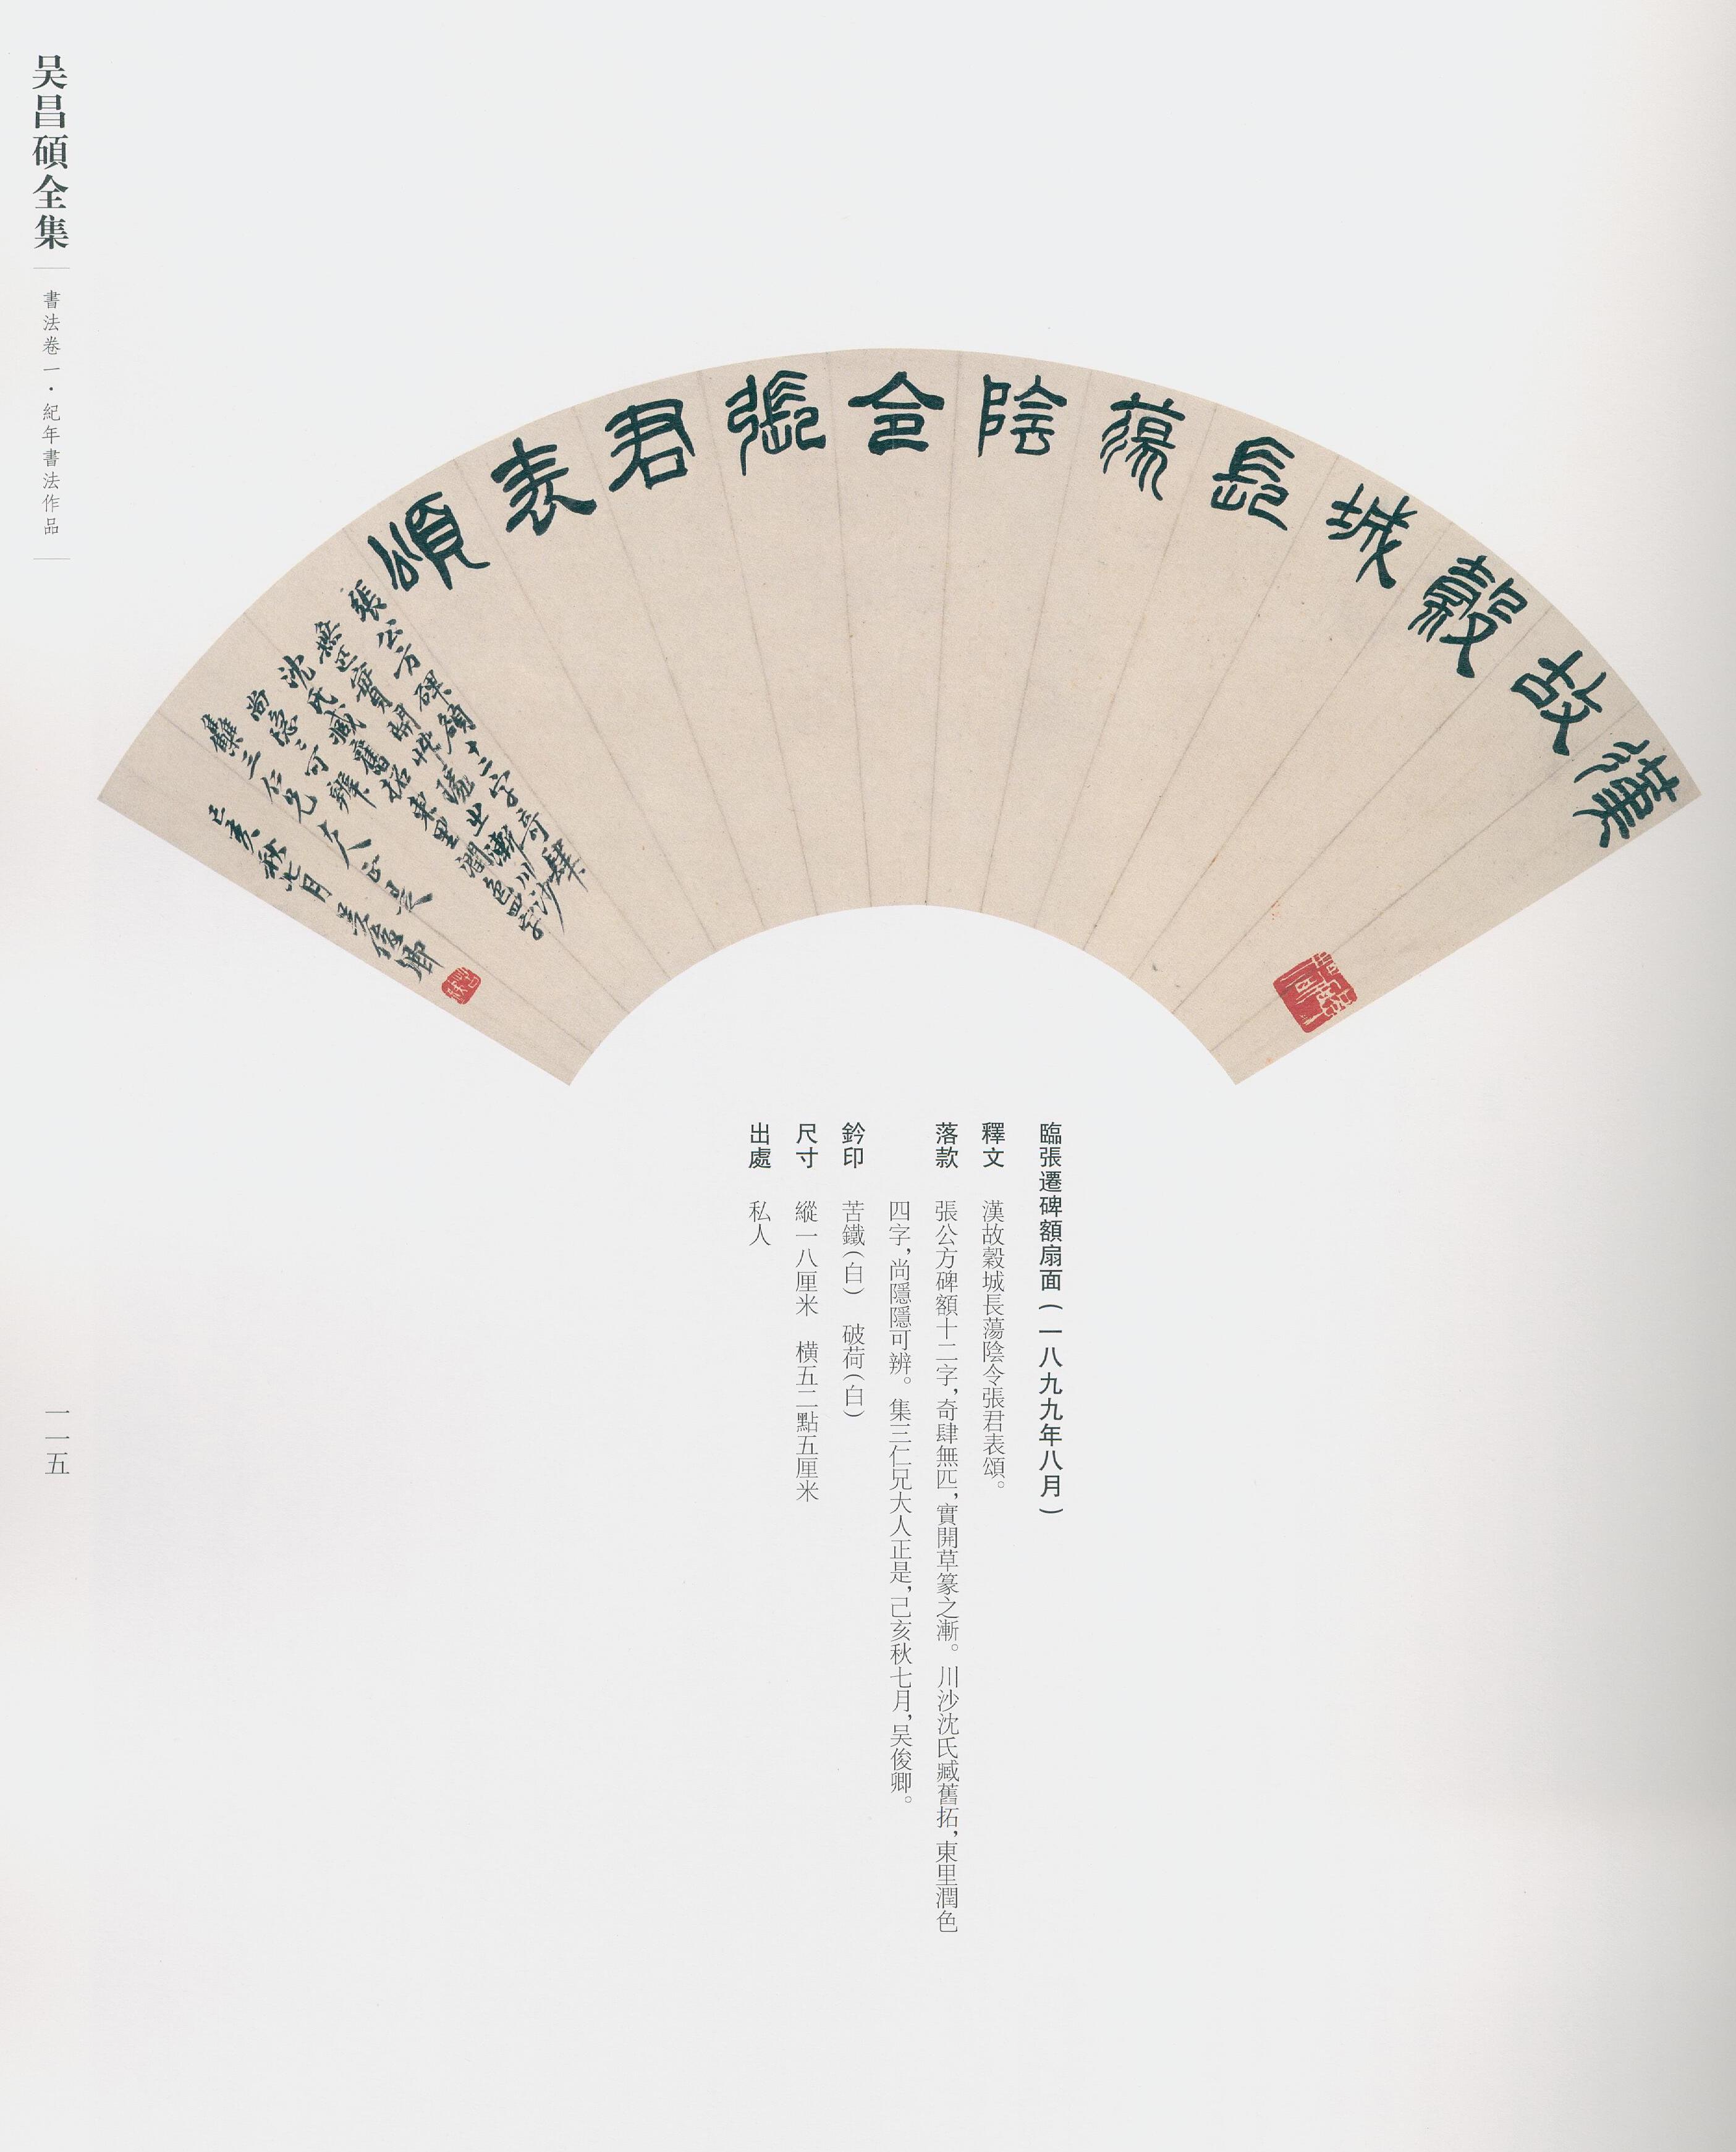 吴昌碩全集
書法卷一·紀年書法作品
一一五
漢故穀城長蕩陰令張君表頌
張公方碑額十二字奇肆
無匹實開艸篆之漸川沙
沈氏臧舊拓東里潤色四字
尚隱〻可辨
集三仁兄大人正是
己亥秋七月吴俊卿
臨張遷碑額扇面(一八九九年八月)
釋文 漢故穀城長蕩陰令張君表頌。
落款 張公方碑額十二字,奇肆無匹,實開草篆之漸。川沙沈氏臧舊拓,東里潤色
四字,尚隱隱可辨。集三仁兄大人正是,己亥秋七月,吴俊卿。
鈐印 苦鐵(白) 破荷(白)
尺寸 縱一八厘米 横五二點五厘米
出處 私人